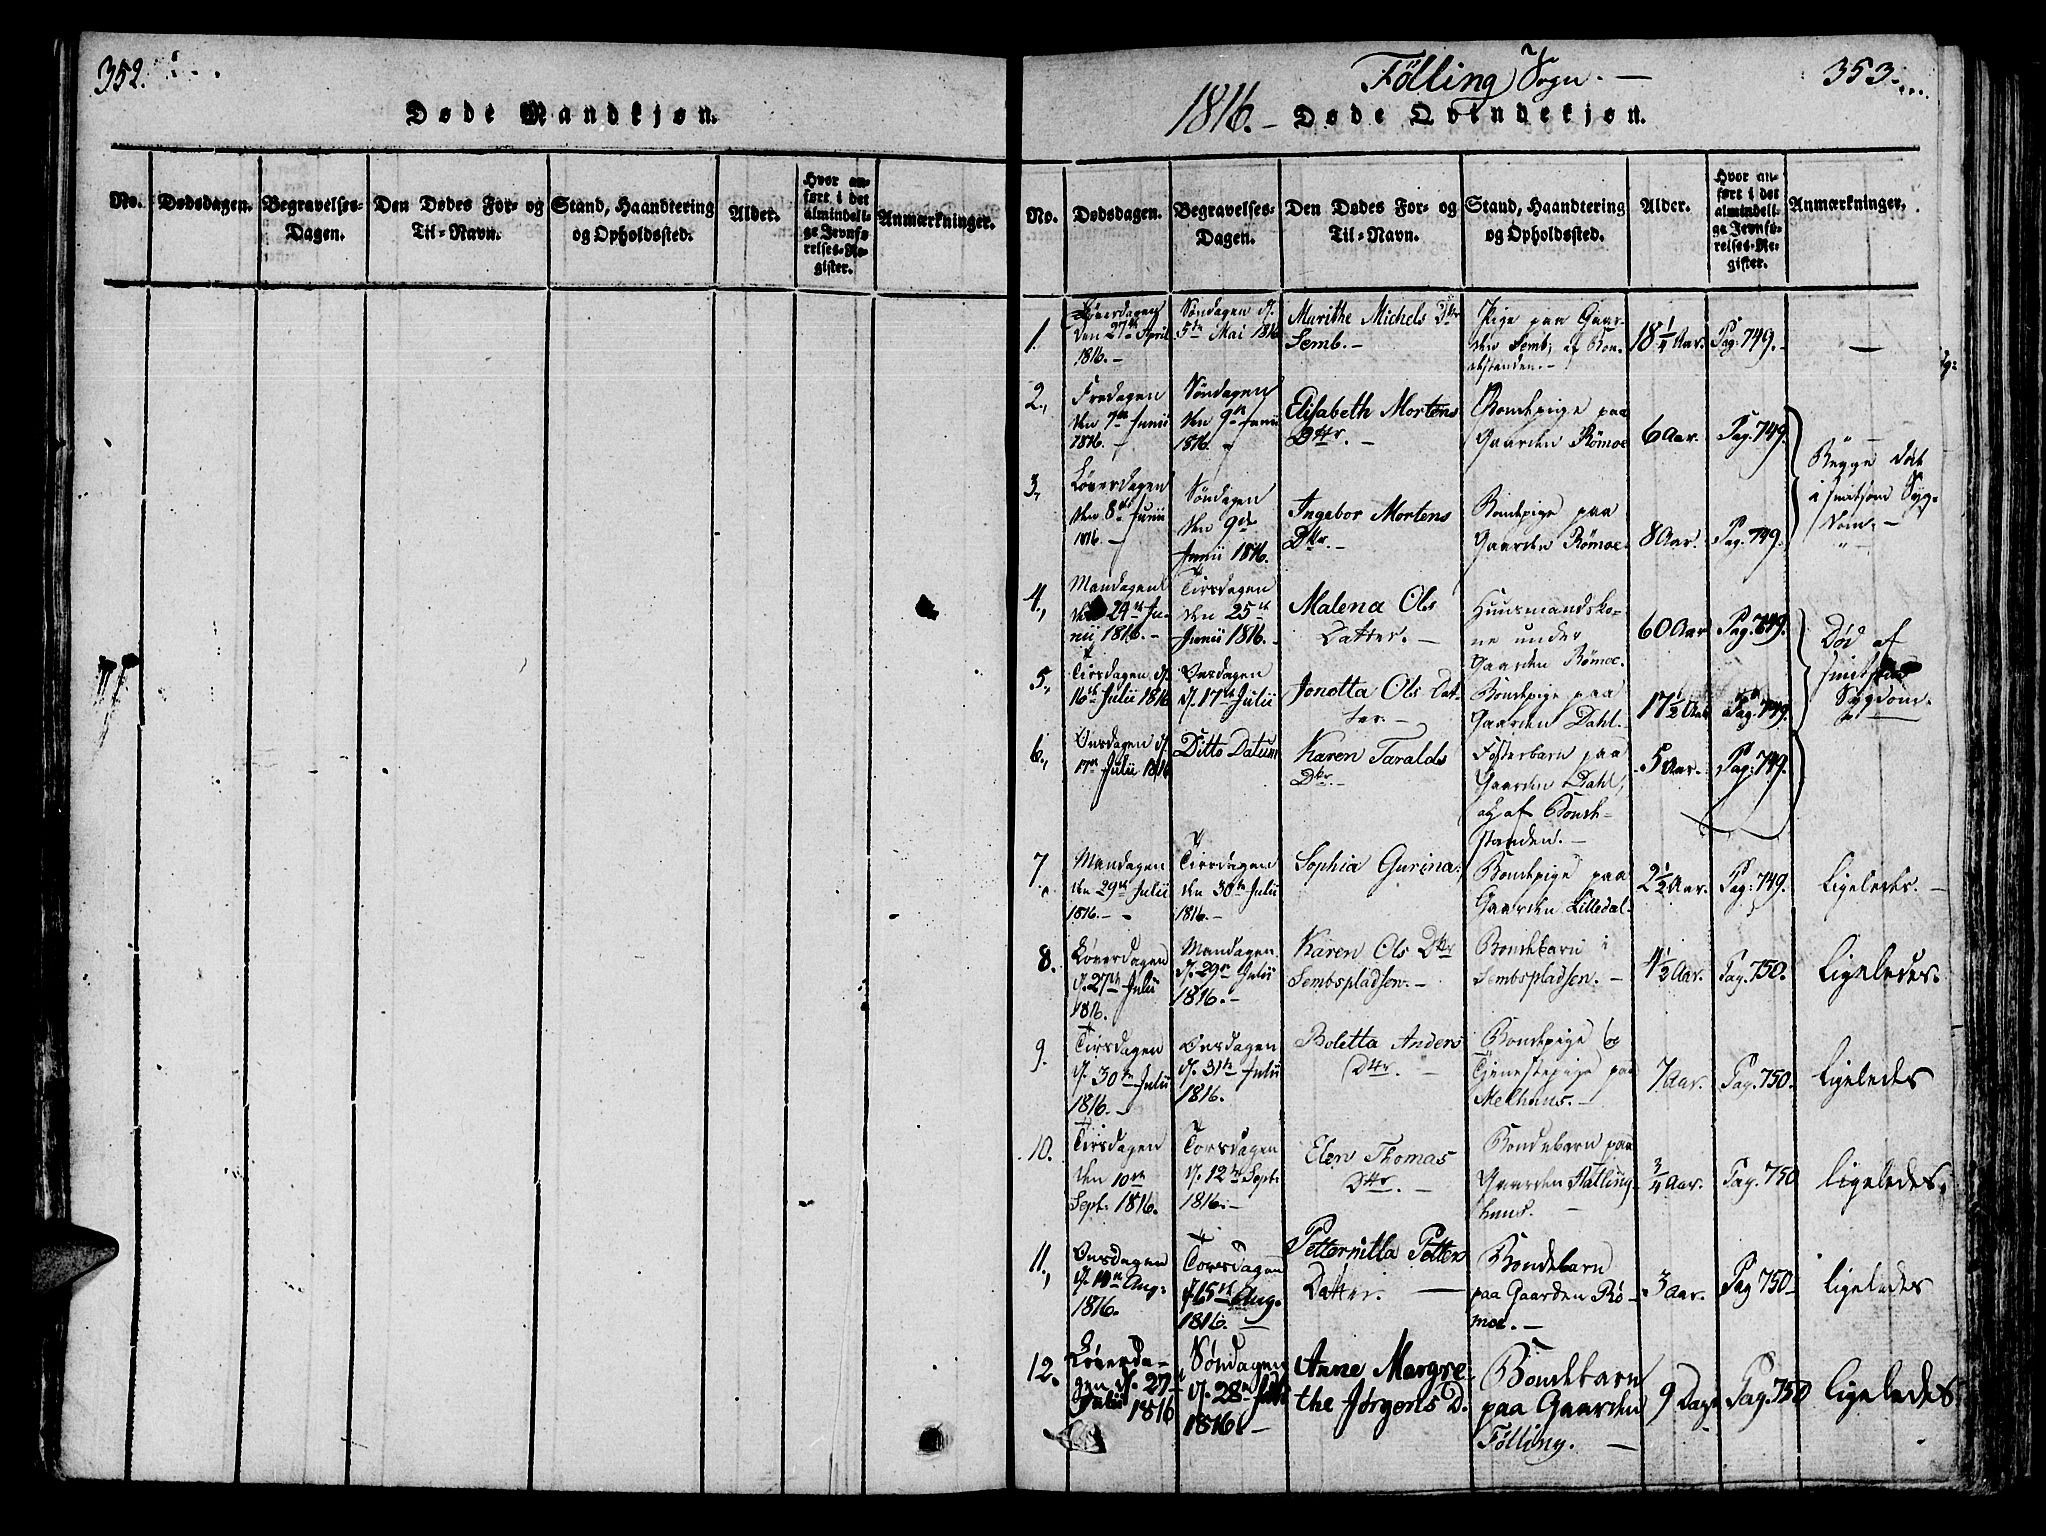 352.
Døde Mandkjøn.
No.
Dødsdagen.
Begravelses-
Dagen.
Den Dødes For- og
Til-Navn.
Stand, Haandtering
og Opholdssted.
Alder.
Hvor an-
ført i det
almindeli-
ge Jevnfø-
relses-Re-
gister.
Anmærkninger.
Fölling Sogn. —
353.
1816. –
Døde Qvindekjøn.
No.
Dødsdagen.
Begravelses-
Dagen.
Den Dødes For- og
Til-Navn.
Stand, Haandtering
og Opholdssted.
Alder.
Hvor an-
ført i det
almindeli-
ge Jevnfø-
relses-Re-
gister.
Anmærkninger.
1.
Løverdagen
den 27de April
1816. –
Søndagen d.
5te Mai 1816
Marithe Michels Dttr
Semb. –
Pige paa Gaar-
den Semb, af Bon-
destanden. –
18 1/4 Aar.
Pag: 749. –
—
2.,
Fredagen
den 7de Junii
1816. –
Søndagen
den 9de Junii
1816. –
Elisabeth Mortens
Dttr. –
Bondepige paa
Gaarden Römoe
6 Aar.
Pag. 749.
Begge døde
i smitsom Syg-
dom. –
3.,
Løverdagen
den 8de Junii
1816. –
Søndagen
den 9de
Junii 1816.
Ingebor Mortens
Dttr. –
Bondepige paa
Gaarden Römoe.
8 Aar.
Pag. 749.
4.,
Mandagen
den 24de Ju-
nii 1816. –
Tirsdagen
den 25de
Junii 1816. –
Malena Ols
Datter. –
Huusmandsko-
ne under
Gaarden Römoe.
60 Aar
Pag. 749.
Død af
smitsom
Sygdom.
5.,
Tirsdagen d.
16de Julii 1816
Onsdagen
d. 17de Julii
Jonetta Ols Dat-
ter. –
Bondepige paa
Gaarden Dahl.
17 1/2 Aar
Pag. 749.
6.,
Onsdagen d.
17de Julii 1816
Ditto Datum
Karen Taralds
Dttr. –
Fosterbarn paa
Gaarden Dahl,
og af Bonde-
standen. –
5 Aar.
Pag: 749.
7.
Mandagen
den 29de Julii
1816. –
Tirsdagen
den 30te Julii
1816. –
Sophia Gurina.
Bondepige paa
Gaarden Lilledal.
2 1/2 Aar.
Pag: 749.
Ligeledes. –
8.
Løverdagen
d. 27de Julii
1816.
Mandagen
d. 29de Julii
1816. –
Karen Ols Dttr
Sembspladsen. –
Bondebarn i
Sembspladsen. –
4 1/2 Aar.
Pag. 750.
Ligeledes.
9.
Tirsdagen
d. 30te Julii
1816. –
Onsdagen
d. 31te Julii
1816.
Boletta Anders
Dttr. –
Bondepige og
Tjenestepige paa
Melhuus. –
7 Aar.
Pag. 750.
Ligeledes
10.
Tirsdagen
den 10de
Sept. 1816.
Torsdagen
d. 12te Sept.
1816. –
Elen Thomas
Dttr. –
Bondebarn paa
Gaarden
huus. –
3/4 Aar.
Pag. 750
Ligeledes.
11.,
Onsdagen
d. 14de Aug:
1816.
Torsdagen
d. 15de Aug.
1816. –
Petternilla Petters
Datter. —
Bondebarn
paa Gaarden Rö-
moe. –
3 Aar.
Pag 750 –
Ligeledes
12.
Løverda-
gen d. 27
Julii 1816
Søndagen
d. 28de Julii
1816. –
Anne Margre-
the Jørgens D.
Bondebarn
paa Gaarden
Fölling. —
9 Dage
Pag. 750
Ligeledes